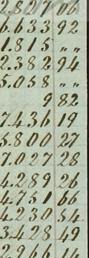 6.633 92
1.815 " "
2.382 94
5.058 " "
9 82
7.436 19
5.800 27
7.027 28
4.289 26
4.751 66
4.230 54
3.428 49